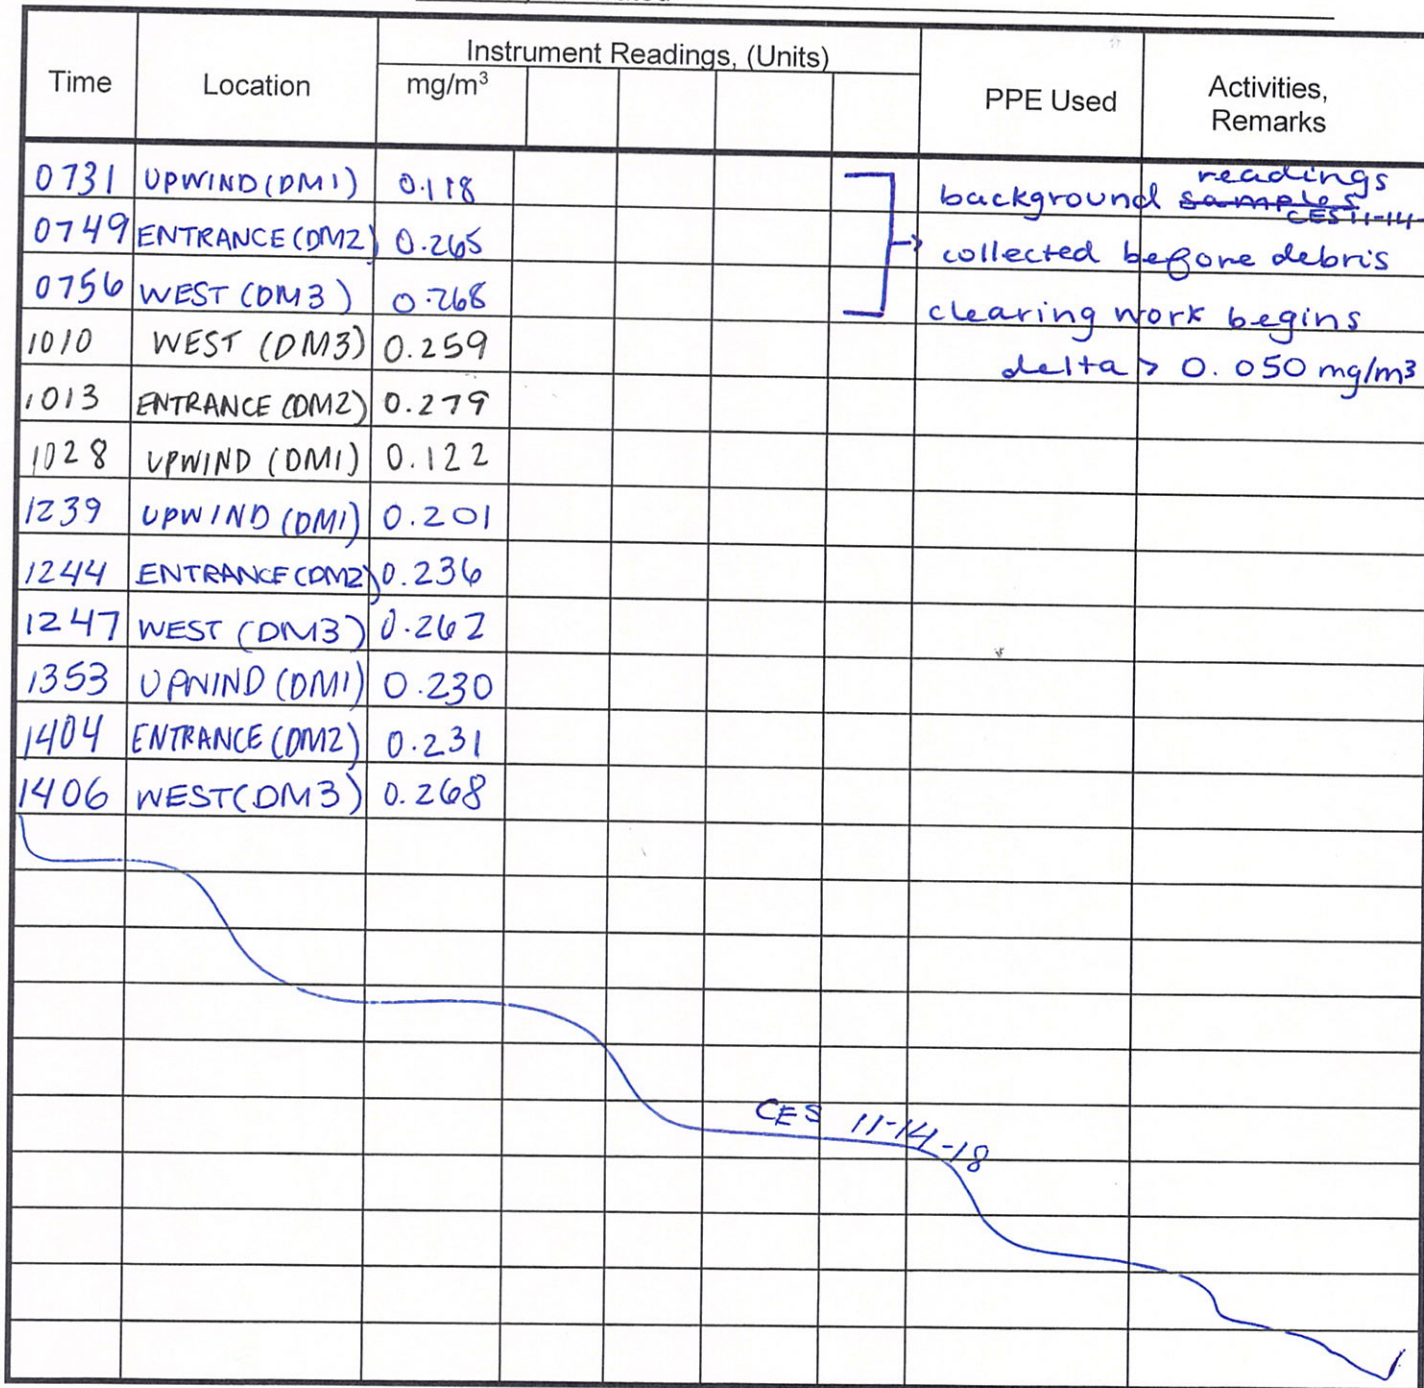 Time Location Instrument Readings, (Units) PPE Used Activities, Remarks
mg/m³
0731 UPWIND (DM1) 0.118 background samples readings
CES 11-14-
0749 ENTRANCE (DM2) 0.265 collected before debris
0756 WEST (DM3) 0.268 clearing work begins
1010 WEST (DM3) 0.259 delta > 0.050 mg/m³
1013 ENTRANCE (DM2) 0.279
1028 UPWIND (DM1) 0.122
1239 UPWIND (DM1) 0.201
1244 ENTRANCE (DM2) 0.236
1247 WEST (DM3) 0.262
1353 UPWIND (DM1) 0.230
1404 ENTRANCE (DM2) 0.231
1406 WEST (DM3) 0.268
CES 11-14-18